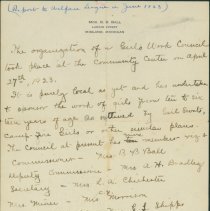 (Report to Welfare League in June 1923)
MRS. B. B. BALL
LARKIN STREET
MIDLAND, MICHIGAN
The organization of a Girls Work Council
took place at the Community Center on April
27th, 1923.
It is purely local as yet and has undertaken
to sponsor the work of girls from ten to six
teen years of age as outlined by Girl Scouts,
Camp-Fire Girls or other similar plans.
The Council at present has ten members viz:
Commissioner - Mrs. B. B. Ball
Deputy Commissioner - Mrs. A. H. Bradley
Secretary - Mrs. E. W. Chichester
Mrs. Miner - Mrs. Morrison